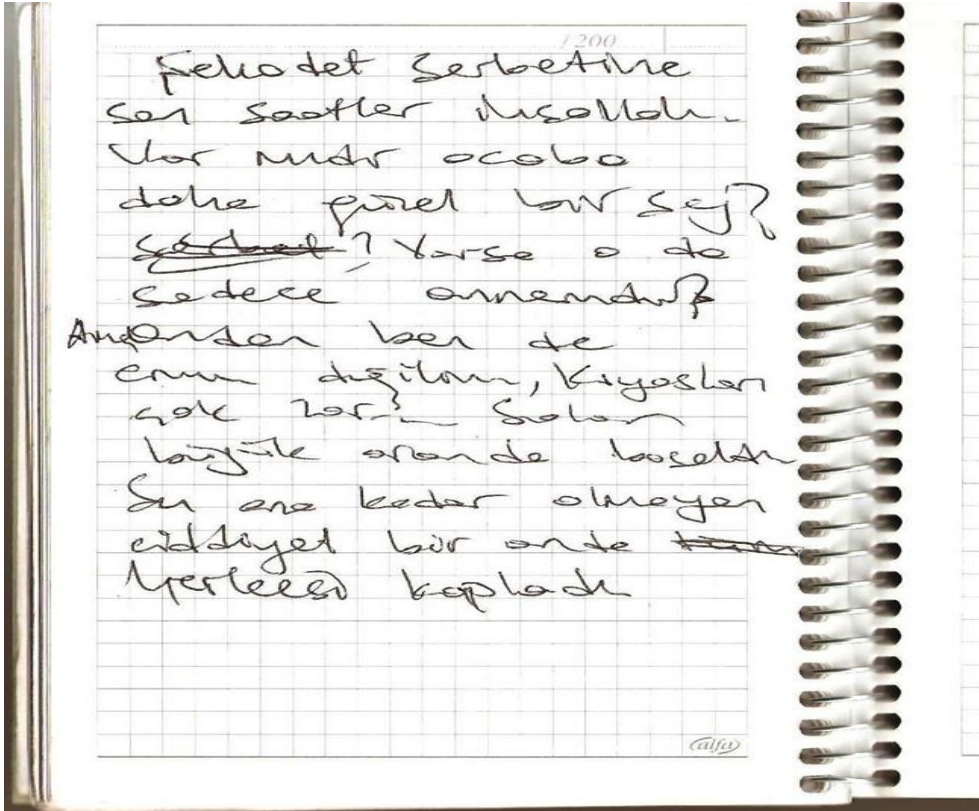 / 200
Şehadet Şerbetine
son saatler inşallah.
Var mıdır acaba
daha güzel bir şey?
şerbet ? Varsa o da
sadece annemdir?
Amandan ben de
emin değilim, Kıyasları
çok zor. Salon
büyük oranda boşaldı
Şu ana kadar olmayan
ciddiyet bir anda
herkesi kapladı
alfa